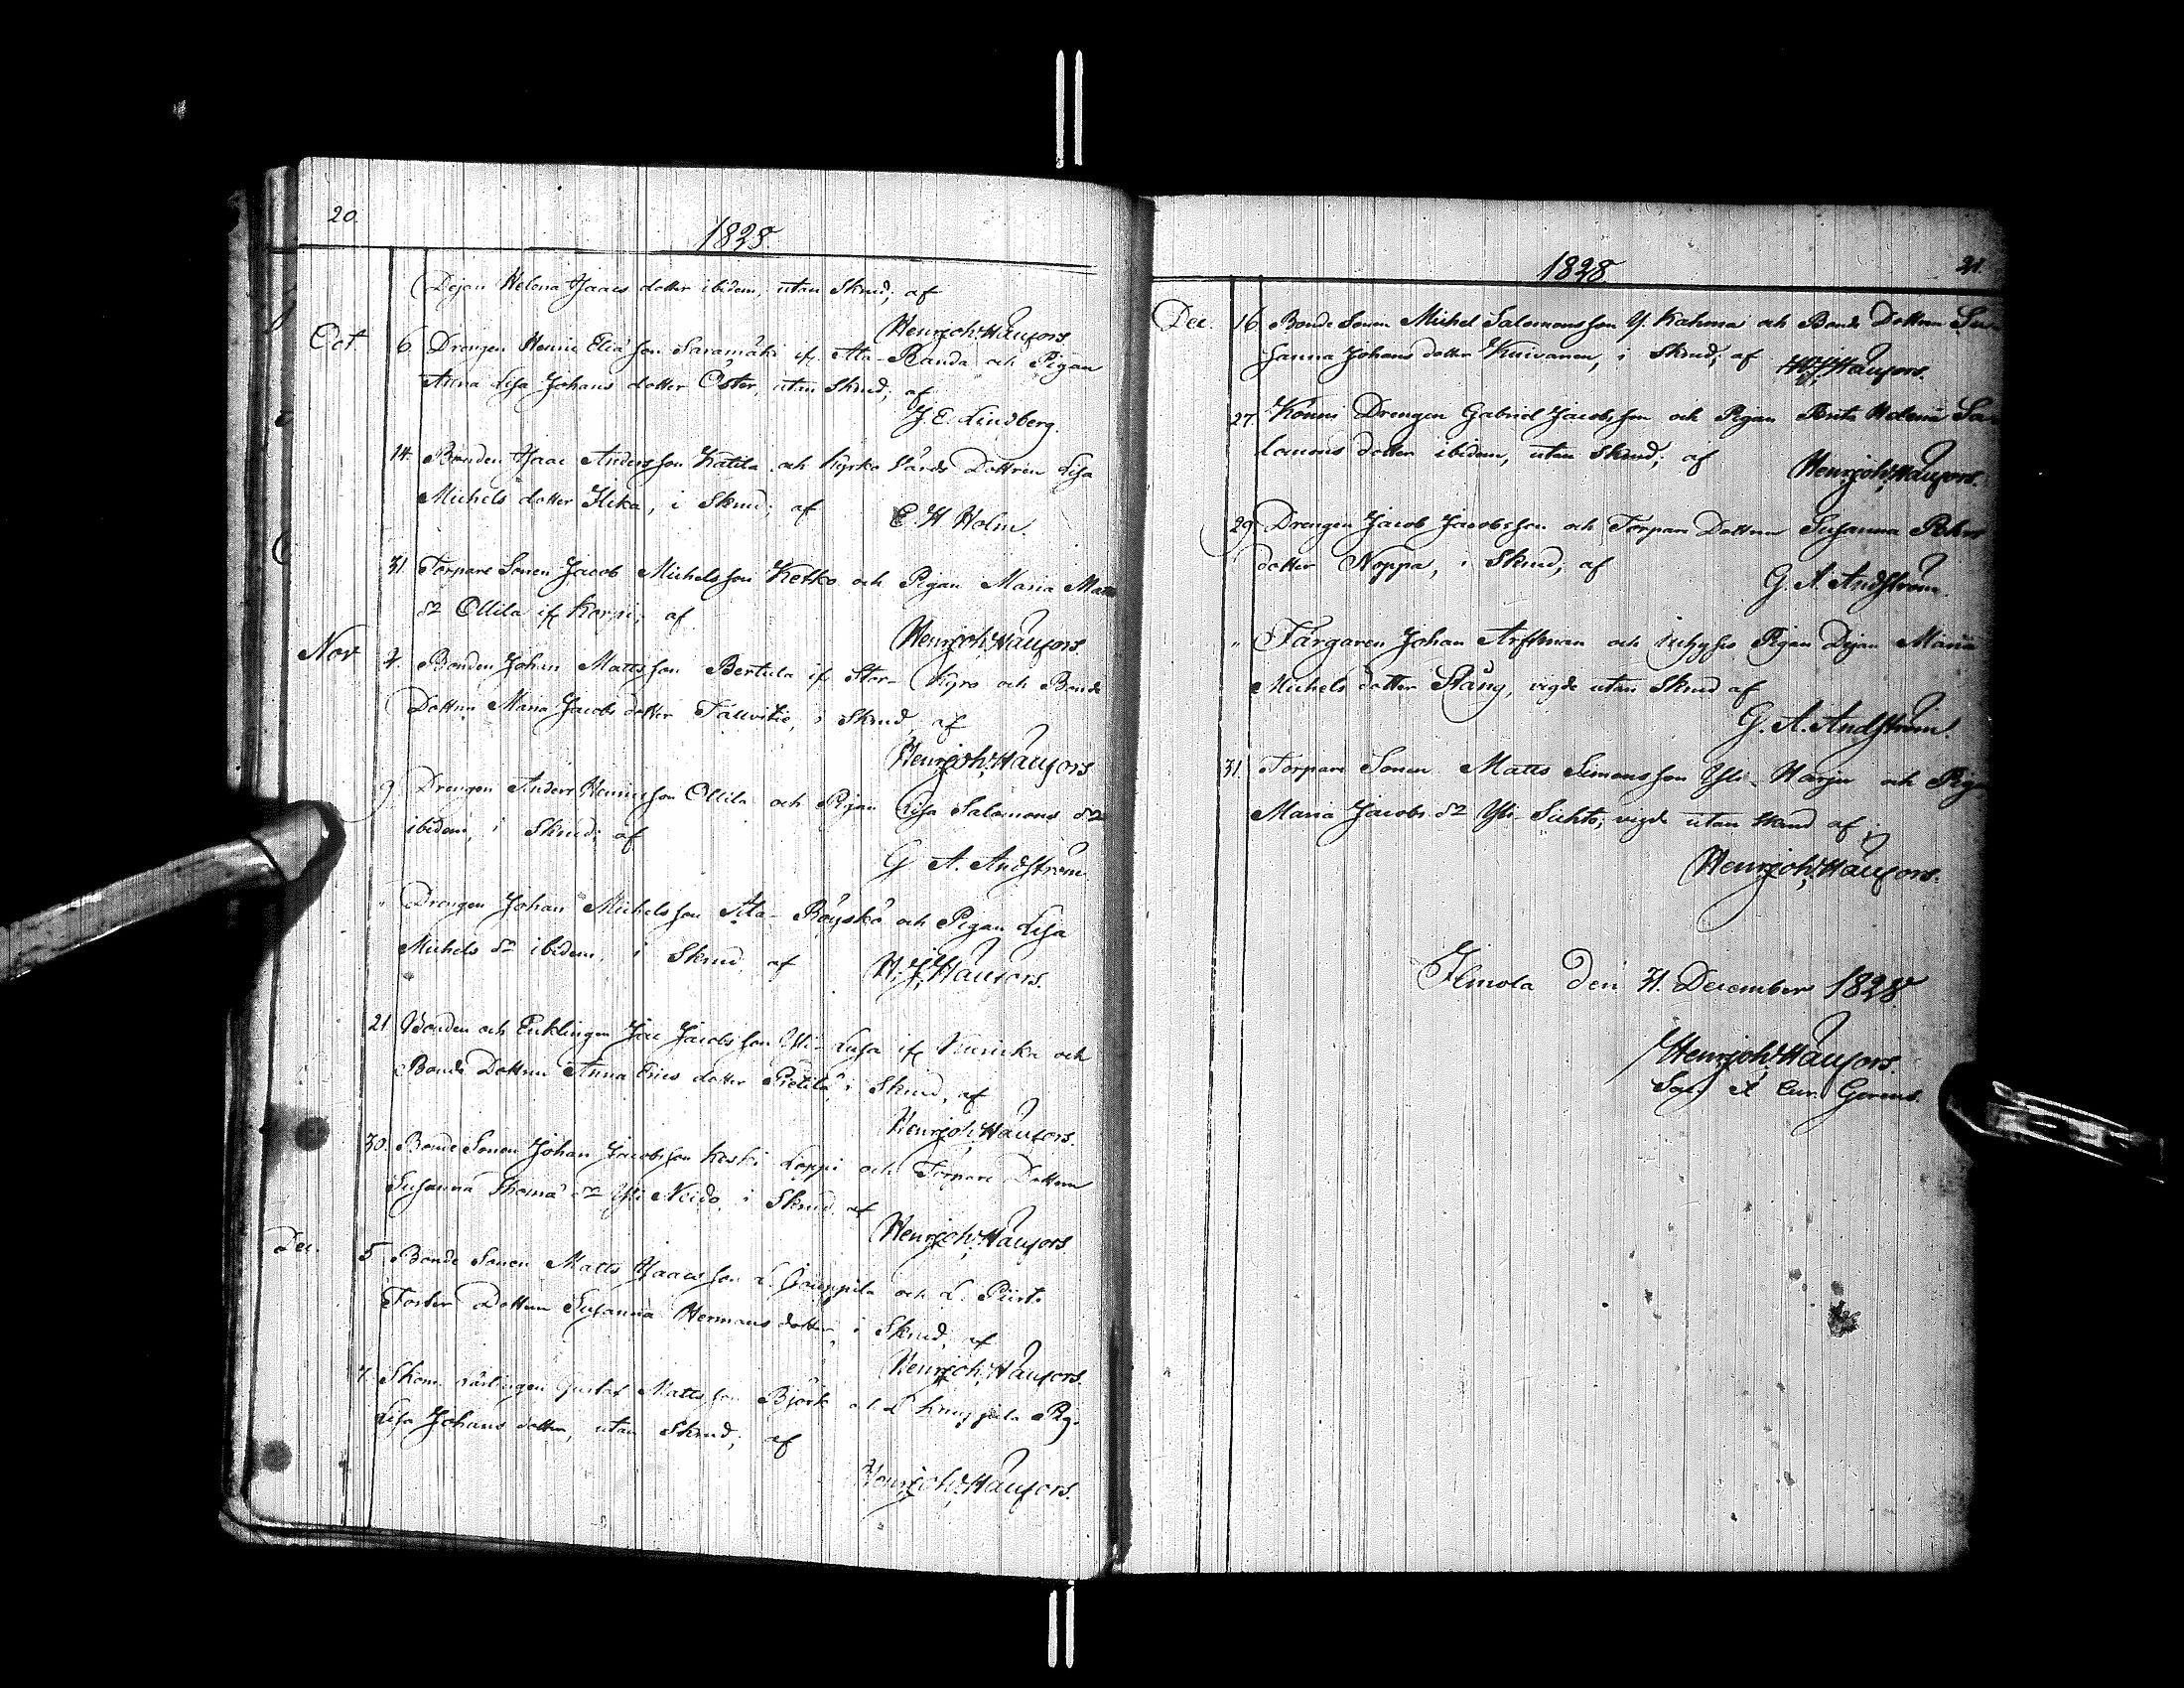 20.
1828.
Dejan Helena Isaacs dotter ibidem, utan Skrud; af
Henr. Joh. Häufors
Oct 6. Drengen Henric Elia son Saramäki if. Ala-Randa och Pigan
Anna Lisa Johans dotter Öster, utan Skrud; af
J. E. Lindberg.
14. Bonden Isaac Anders son Katila och Kyrko Värds Dottren Lisa
Michels dotter Ilka, i Skrud; af
E. H Holm.
31. Torpare Sonen Jacob Michels son Ketko och Pigan Maria Matts
dr Ollila if Korpi; af
Henr. Joh. Häufors
Nov 2. Bonden Johan Matts son Bertula if Stor-Kyro och Bonde
Dottren Maria Jacobs dotter Tallvitie, i Skrud, af
Henr. Joh. Häufors
9 Drengen Anders Henrics son Ollila och Pigan Lisa Salomons dr
ibidem, i Skrud; af
G A. Andström.
" Drengen Johan Michels son Ala-Röyskö och Pigan Lisa
Michels dr ibidem, i Skrud, af
H. J. Häufors.
21 Bonden och Enklingen Jac Jacobs son Yli-Luja if Kuricka och
Bonde Dottren Anna Erics dotter Pietilä, i Skrud, af
Henr. Joh. Häufors.
30. Bonde Sonen Johan Jacobs son Keski Loppi och Torpare Dottren
Susanna Thoma dr Yli Neiro, i Skrud, af
Henr. Joh. Häufors
Dec. 5. Bonde Sonen Matts Isaacs son L. och L. Piirto
Foster Dottren Susanna Hermans dotter, i Skrud, af
Henr. Joh. Häufors.
7. Skom. Gustaf Matts son Björk och L Pig.
Lisa Johans dotter, utan Skrud; af
Henr. Joh. Häufors.
1828.
21.
Dec. 16. Bonde Sonen Michel Salomons son Y. Kahma och Bonde Dottren Su-
sanna Johans dotter Knivanen, i Skrud; af H. J. Häufors.
27. Könni Drengen Gabriel Jacobs son och Pigan Brita Helena Sa-
lomons dotter ibidem, utan Skrud; af
Henr. Joh. Häufors.
29. Drengen Jacob Jacobs son och Torpare Dottren Susanna Pehrs
dotter Noppa, i Skrud; af
G. A. Andström.
" Färgaren Johan Arffman och Pigan Dejan Maria
Michels dotter Stång, vigde utan Skrud af
G. A. Andström.
31. Torpare Sonen Matts Simons son Yli-Harju och Pigan
Maria Jacobs dr Yli-Suhto, vigde utan skrud af
Henr. Joh. Häufors.
Ilmola den 31. December 1828
Henr. Joh. Häufors.